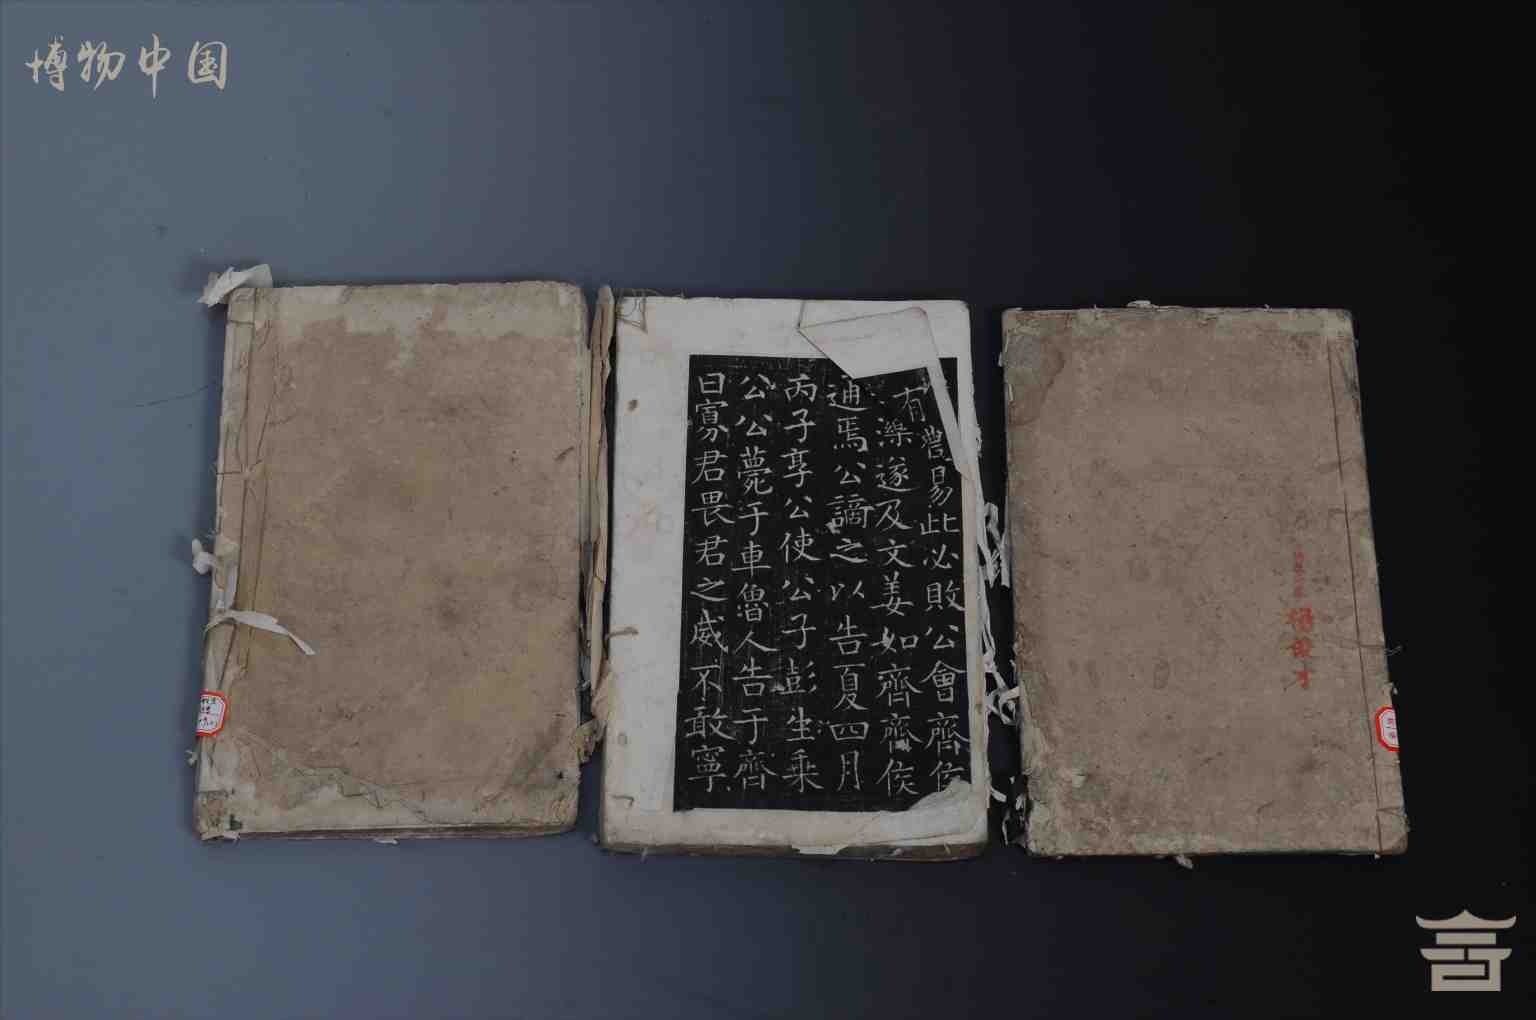 博物中国
有瀆易此必敗公會齊侯
濼遂及文姜如齊齊侯
通焉公謫之以告夏四月
丙子享公使公子彭生乗
公公薨于車魯人告于齊
曰寡君畏君之威不敢寧